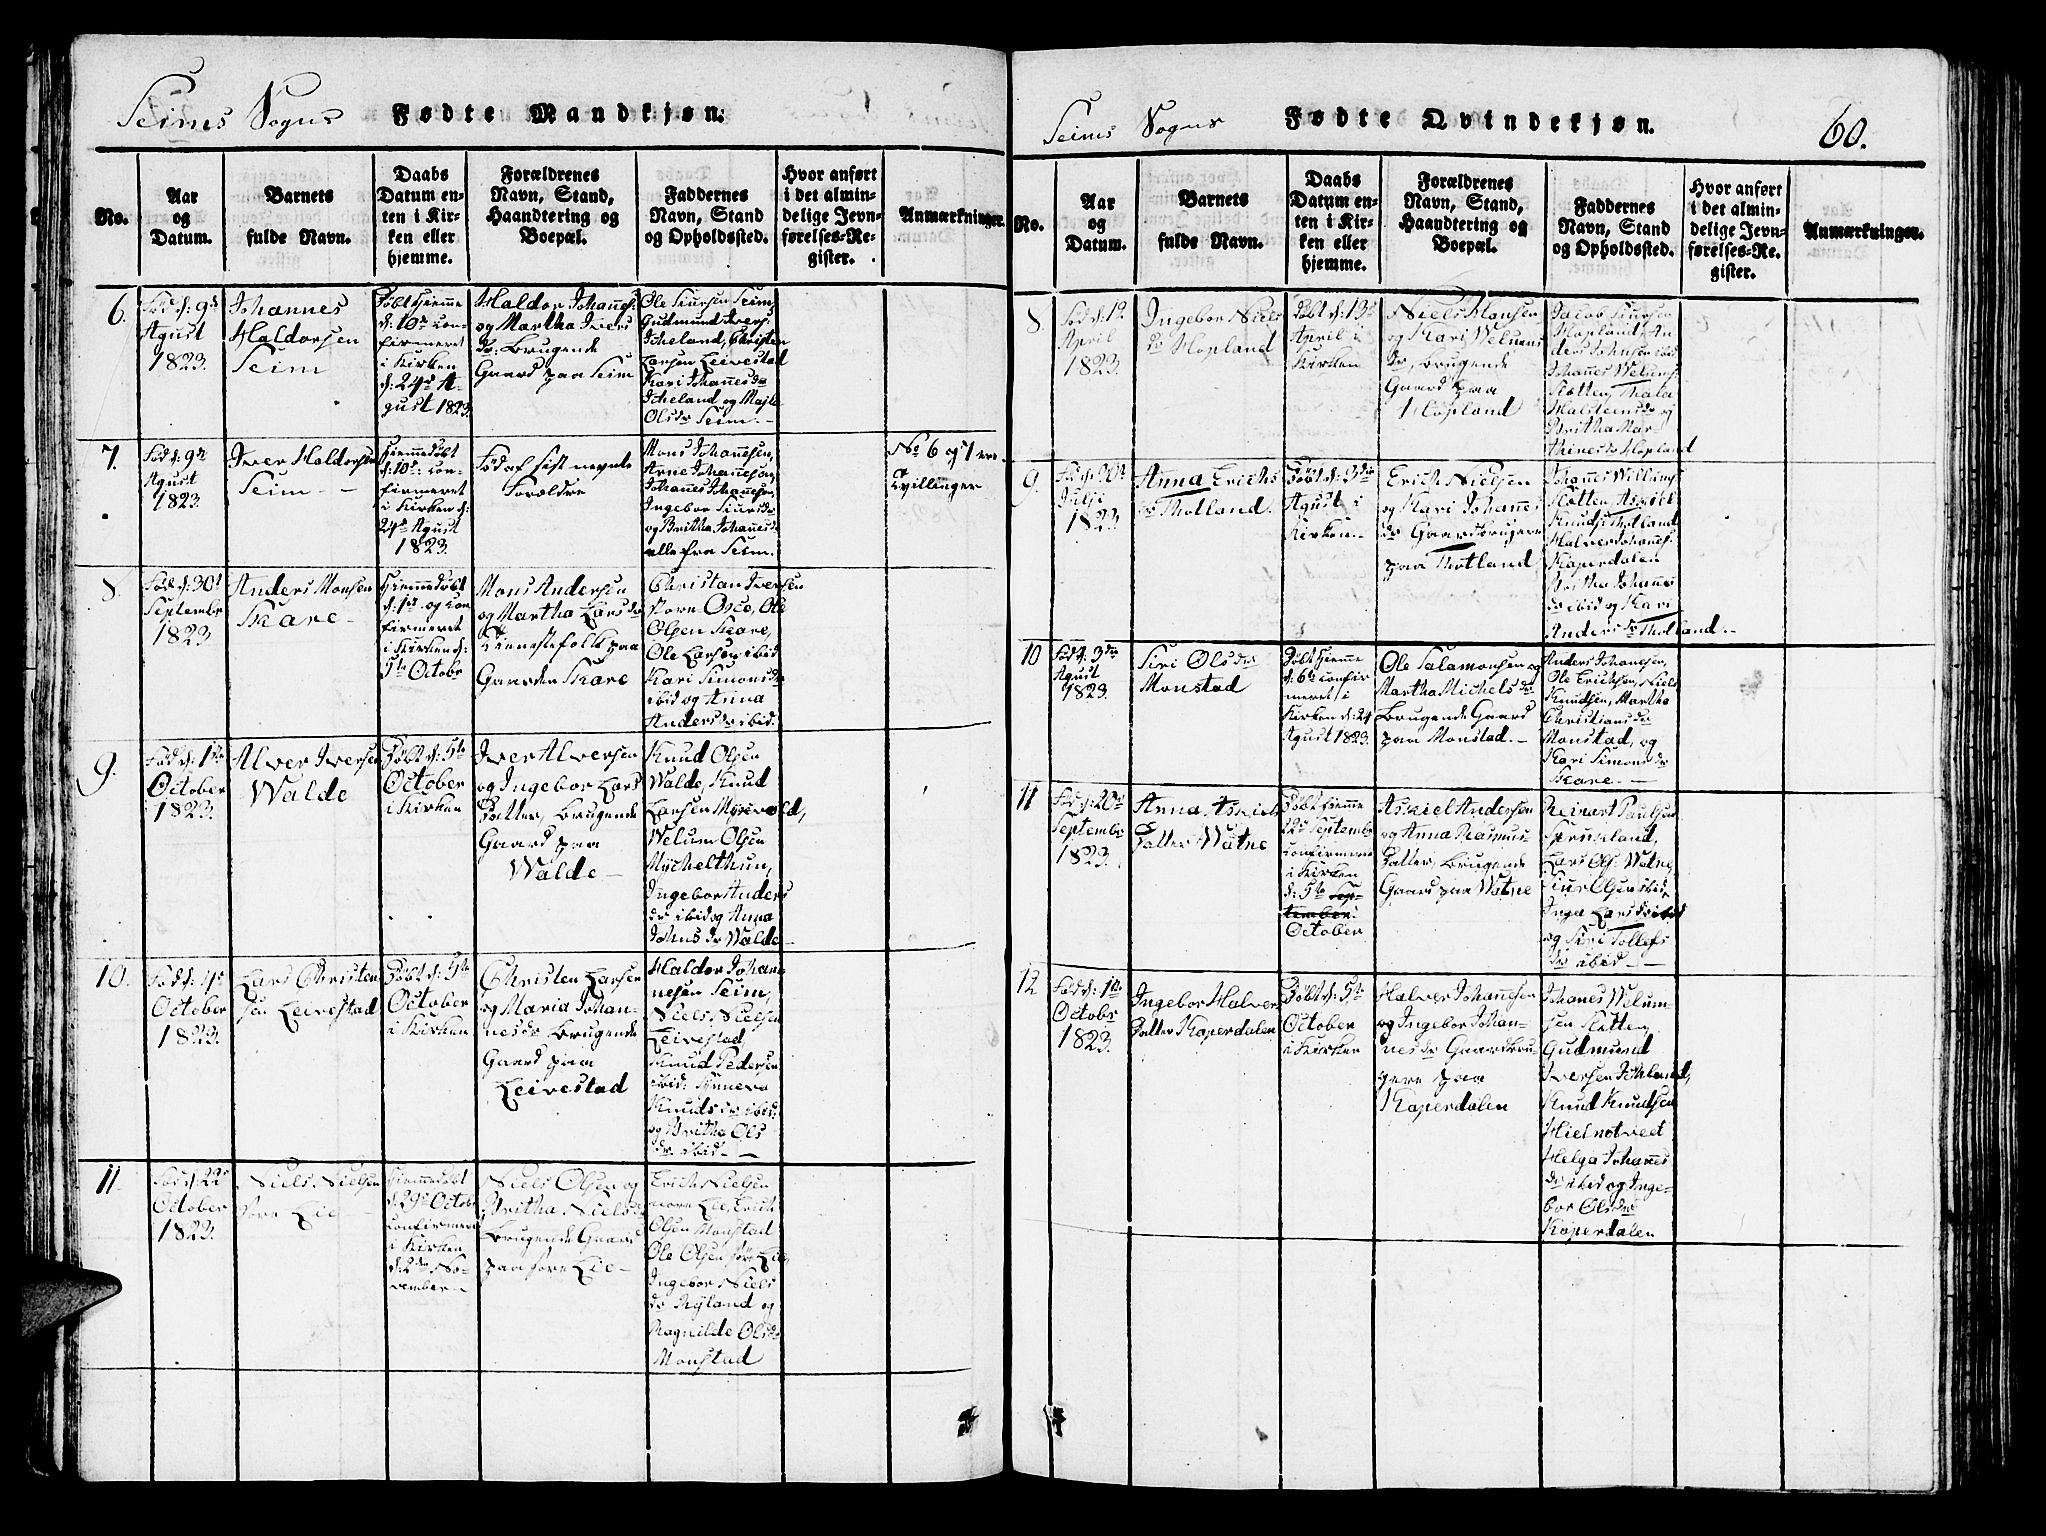 Seims Sogns Fødte Mandkjøn.
No.
Aar
og
Datum.
Barnets
fulde Navn.
Daabs
Datum en-
ten i Kir-
ken eller
hjemme.
Forældrenes
Navn, Stand,
Haandtering og
Boepæl.
Faddernes
Navn, Stand
og Opholdssted.
Hvor anført
i det almin-
delige Jevn-
førelses-Re-
gister.
Anmærkninger.
6.
Fød d: 9de
Agust
1823.
Johannes
Haldorsen
Seim
Døbt hiemme
d: 10de con-
firmeret
i Kirken
d: 24de A-
gust 1823.
Haldor Johannes:
og Martha Ivers
dr: Brugende
Gaard paa Seim
Ole Siursen Seim,
Gudmund Ivers:
Christen
Larsen Leivestad
Kari Johanesdr
og
Olsdr Seim.
7.
Fød d: 9de
Agust
1823
Iver Haldorsen
Seim
Hiemmedøbt
d: 10de con-
firmeret
i Kirken d:
24de Agust
1823.
Fød af sist nevnte
Forældre
Mons Johannesen,
Arne Johannesen,
Johannes Johannesen,
Ingebor Siursdr
og Britha Johanesdr
alle fra Seim.
No 6 og 7 ere
Tvillinger
8.
Fød d: 30te
Septembr
1823
Anders Monsen
Skare
Hiemmedøbt
d: 1ste og con
firmeret
i Kirken d:
5te Octobr
Mons Andersen
og Martha Larsdr
Tienestefolk paa
Gaarden Skare
Christian Iversen
Ole
Olsen Skare,
Ole Larsen ibid
Kari Simonsdr
ibid og Anna
Andersdr ibid.
9.
Fød d: 1ste
October
1823.
Alver Iversen
Walde
Døbt d: 5te
October
i Kirken
Iver Alversen
og Ingebor Lars
Datter, Brugende
Gaard paa
Walde
Knud Olsen
Walde, Knud
Larsen Myrevold,
Welum Olsen
Mychelthun,
Ingebor Anders
dr ibid og Anna
Johnsdr Walde
10.
Fød d: 4de
October
1823.
Lars Christen
søn Leivestad
Døbt d: 5te
October
i Kirken
Christen Larsen
og Maria Johan-
nesdr Brugende
Gaard paa
Leivestad
Haldor Johan
nesen Seim,
Niels Nielsen
Leivestad
Knud Pedersen
ibid: Synneva
Knudsdr ibid:
og Britha Ols
dr ibid
11
Fød d: 22de
October
1823.
Niels Nielsen
Lie
Hiemmedøbt
d: 29de Octobr
confirmeret
i Kirken
d: 2den No-
vember
Niels Olsen og
Britha Nielsdr
Brugende Gaard
paa Lie
Erich Nielsen
Lie, Erich
Olsen Monstad
Ole Olsen Lie,
Ingebor Niels
dr Ryland og
Ragnilde Olsdr
Monstad
Seims Sogns Fødte Qvindekjøn. 60.
No.
Aar
og
Datum.
Barnets
fulde Navn.
Daabs
Datum en-
ten i Kir-
ken eller
hjemme.
Forældrenes
Navn, Stand,
Haandtering og
Boepæl.
Faddernes
Navn, Stand
og Opholdssted.
Hvor anført
i det almin-
delige Jevn-
førelses-Re-
gister.
Anmærkninger.
8
April
1823.
Ingebor Niels
dr Hopland
Døbt d: 13de
April i
Kirken
Niels Hansen
og Kari Welums
dr, Brugende
Gaard paa
Hopland
Jacob Siursen
Hopland, An
ders Johnsen ibid
Johanes Welums:
Sletten, Thala
Halsteinsdr og
Britha Mar
thinesdr Hopland
9.
Fød d: 30te
Julji
1823
Anna Erichs
dr Thotland.
Døbt d: 3die
Agust i
Kirken.
Erich Nielsen
og Kari Johannes
dr Gaardbrugere
paa Thotland
Johannes Willums:
Sletten, Askiel
Knuds: Thotland
Halver Johannes:
Kaperdalen
Britha Johannes
dr ibid og Kari
Andersdr Thotland.
10
Fød d: 3die
Agust
1823.
Siri Olsdr
Monstad
Døbt hiemme
d: 6te confir
meret i
Kirken d: 24
Agust 1823.
Ole Salamonsen og
Martha Michelsdr
Brugende Gaard
paa Monstad.
Anders Johanesen,
Ole Erichsen, Niels
Knudsen, Martha
Christiansdr
Monstad, og
Kari Simonsdr
Skare
11
Fød d: 20de
Septembr
1823.
Anna Askiels
Datter Watne
Døbt hiemme
22de Septembr
confirmeret
i Kirken
d: 5te Sep-
tember:
October
Askiel Andersen
og Anna Rasmus
Datter, Brugende
Gaard paa Watne
Reinert Paulsen
Lars Ols: Watne,
Siur Olsen ibid,
Inga Larsdr ibid
og Siri Tollefs
dr ibid
12
Fød d: 1ste
Octobr
1823.
Ingebor Halvers
Datter Kaperdalen
Døbt d: 5te
October
i Kirken
Halver Johannesen
og Ingebor Johan-
nesdr Gaardbru-
gere paa
Kaperdalen
Johanes Welum-
sen Sletten,
Gudmund
Iversen
Knud Knudsen
Hielmetveet
Helga Johannes
dr ibid og Inge-
bor Olsdr
Kaperdalen